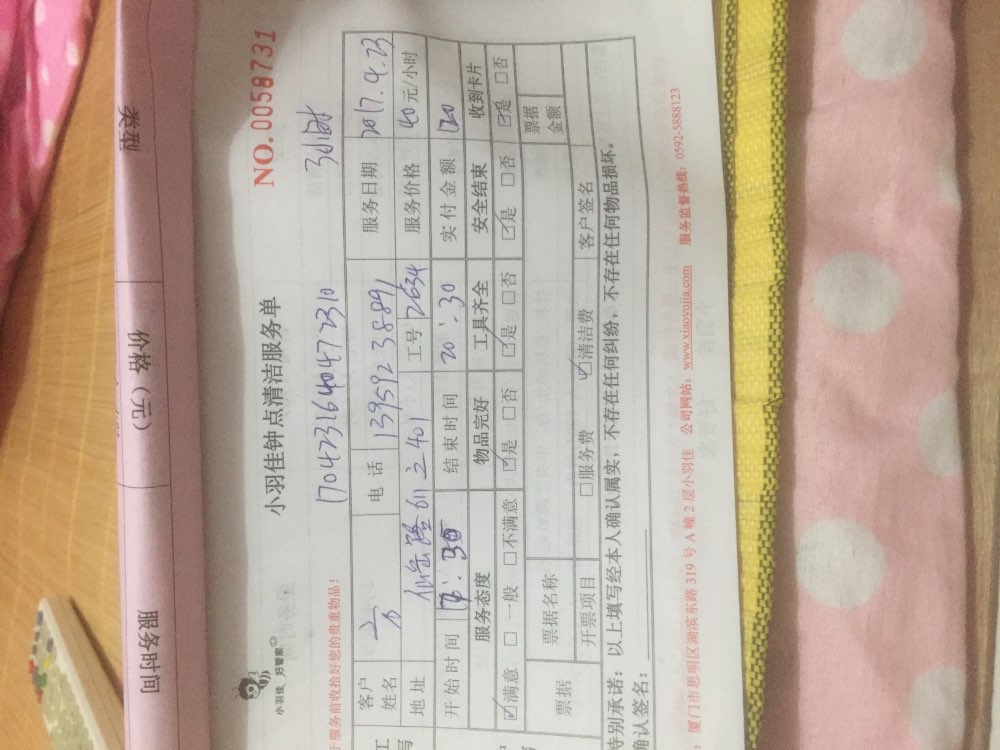 类型
价格（元）
服务时间
NO.0058731
小羽佳 好管家
小羽佳钟点清洁服务单
于服务前收拾好您的贵重物品！
1704231640472310
3小时
客户姓名
方
电话
13959238891
服务日期
2017.4.23
地址
仙岳路611之401
工号
2634
服务价格
40元/小时
开始时间
结束时间
20:30
实付金额
120
服务态度
物品完好
工具齐全
安全结束
收到卡片
☑满意 □一般 □不满意
☑是 □否
☑是 □否
☑是 □否
☑是 □否
票据
票据名称
票据金额
开票项目
□服务费 ☑清洁费
客户签名
特别承诺：以上填写经本人确认属实，不存在任何纠纷，不存在任何物品损坏。
确认签名：
厦门市思明区湖滨东路319号A幢2层小羽佳 公司网站：www.xiaoyujia.com 服务监督热线：0592-5888123